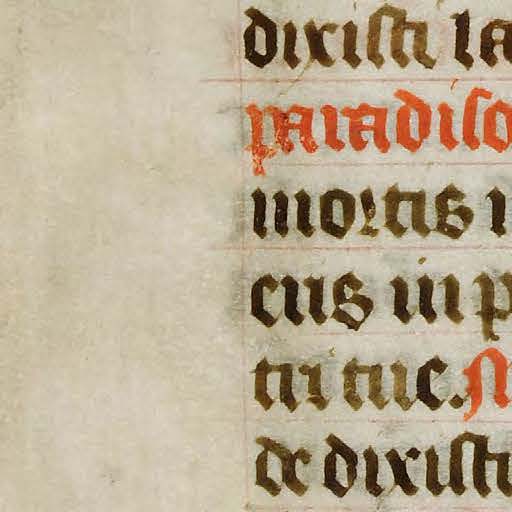 dixisti la
paradiso
mortis
cus in p
tri tue. M
de dixisti